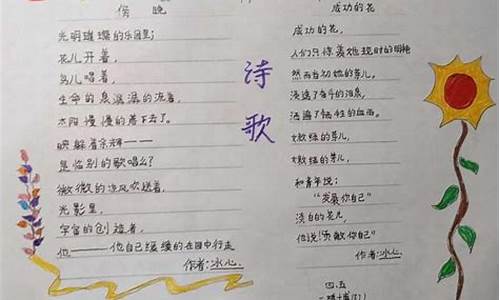 傍晚
光明璀璨的乐园里;
花儿开着,
鸟儿唱着,
生命的泉潺潺的流着,
太阳慢慢的落下去了。
映射着余辉——
是临别的歌唱么?
微微的凉风吹送着,
光影里,
宇宙的创造者,
他——他自己缓缓的在园中行走
作者:冰心.
诗歌
成功的花
成功的花,
人们只惊慕她现时的明艳
然而当初她的芽儿,
浸透了奋斗的泪泉,
洒遍了牺牲的血雨。
嫩绿的芽儿,
嫩绿的芽儿,
和青年说:
"发展你自己"
淡白的花儿,
他说:"贡献你自己"
作者:冰心
四.五